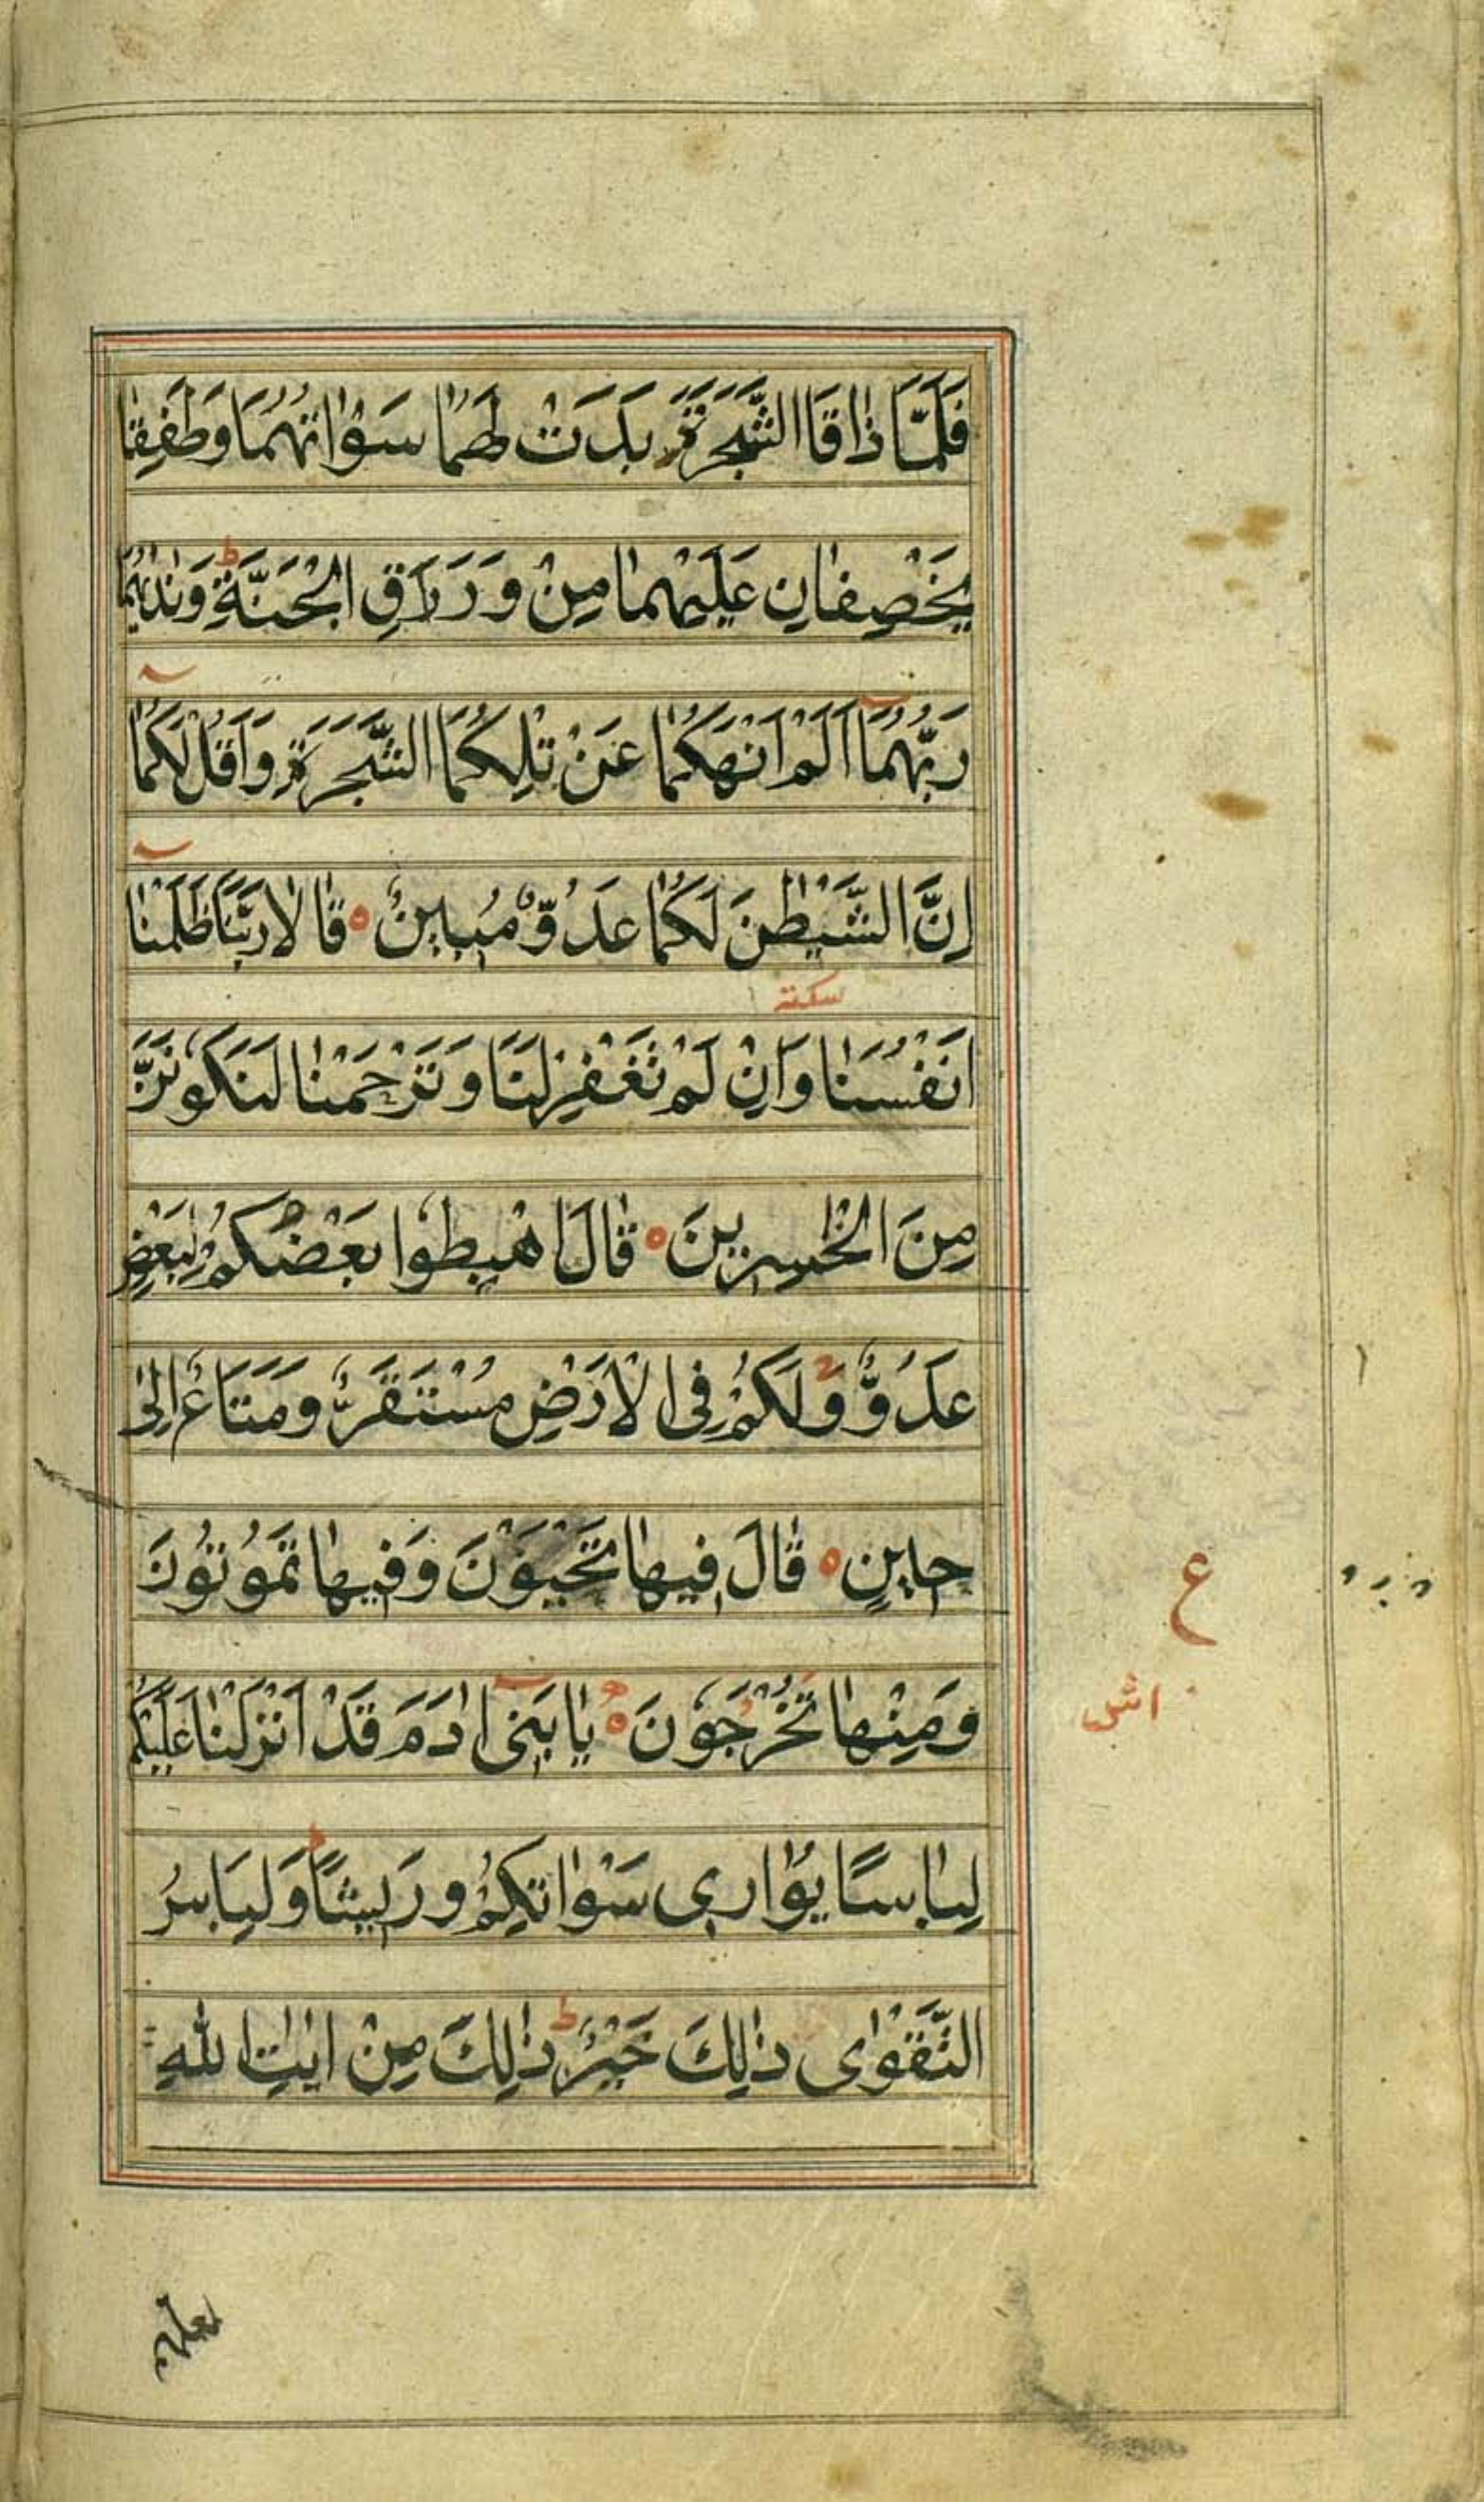 فَلَمَّا ذٰاقَا الشَّجَرَةَ بَدَتْ لَهُمٰا سَوْاٰتُهُمَا وَطَفِقٰا
يَخْصِفٰانِ عَلَيْهِمٰا مِنْ وَرَرَاقِ الْجَنَّةِ ط وَنٰدٰيهُمٰا
رَبُّهُمَا اَلَمْ اَنْهَكُمٰا عَنْ تِلْكُمَا الشَّجَرَةِ وَاَقُلْ لَكُمٰا
اِنَّ الشَّيْطٰنَ لَكُمٰا عَدُوٌّ مُبٖينٌ ۝ قٰالاٰ رَبَّنَا ظَلَمْنٰا
سكته
اَنْفُسَنٰا وَاِنْ لَمْ تَغْفِرْ لَنَا وَتَرْحَمْنٰا لَنَكُونَنَّ
مِنَ الْخٰسِرٖينَ ۝ قٰالَ اهْبِطُوا بَعْضُكُمْ لِبَعْضٍ
عَدُوٌّ وَلَكُمْ فِى الْاَرْضِ مُسْتَقَرٌّ وَمَتَاعٌ اِلىٰ
حٖينٍ ۝ قٰالَ فٖيهٰا تَحْيَوْنَ وَفٖيهٰا تَمُوتُونَ
ع
وَمِنْهٰا تُخْرَجُونَ ۝ يٰا بَنٖى اٰدَمَ قَدْ اَنْزَلْنٰا عَلَيْكُمْ
لِبٰاسًا يُوٰارٖى سَوْاٰتِكُمْ وَرٖيشًا ط وَلِبَاسُ
التَّقْوٰاى ذٰلِكَ خَيْرٌ ط ذٰلِكَ مِنْ اٰيٰتِ اللّٰهِ
لعلهم